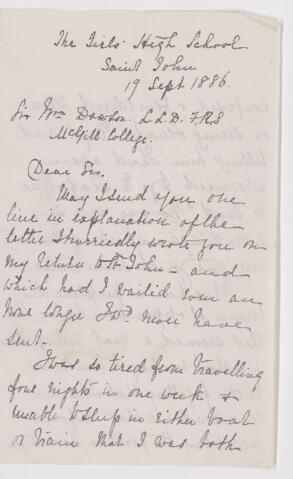 The Girls' High School
Saint John
19 Sept 1886.
Sir Wm Dawson. L.L.D. F.R.S
McGill College.
Dear Sir.
May I send you one
line in explanation of the
letter I hurriedly wrote you on
my return to St John - and
which had I waited even an
hour longer I wd never have
sent.
I was so tired from travelling
four nights in one week &
unable to sleep in either boat
or train that I was both